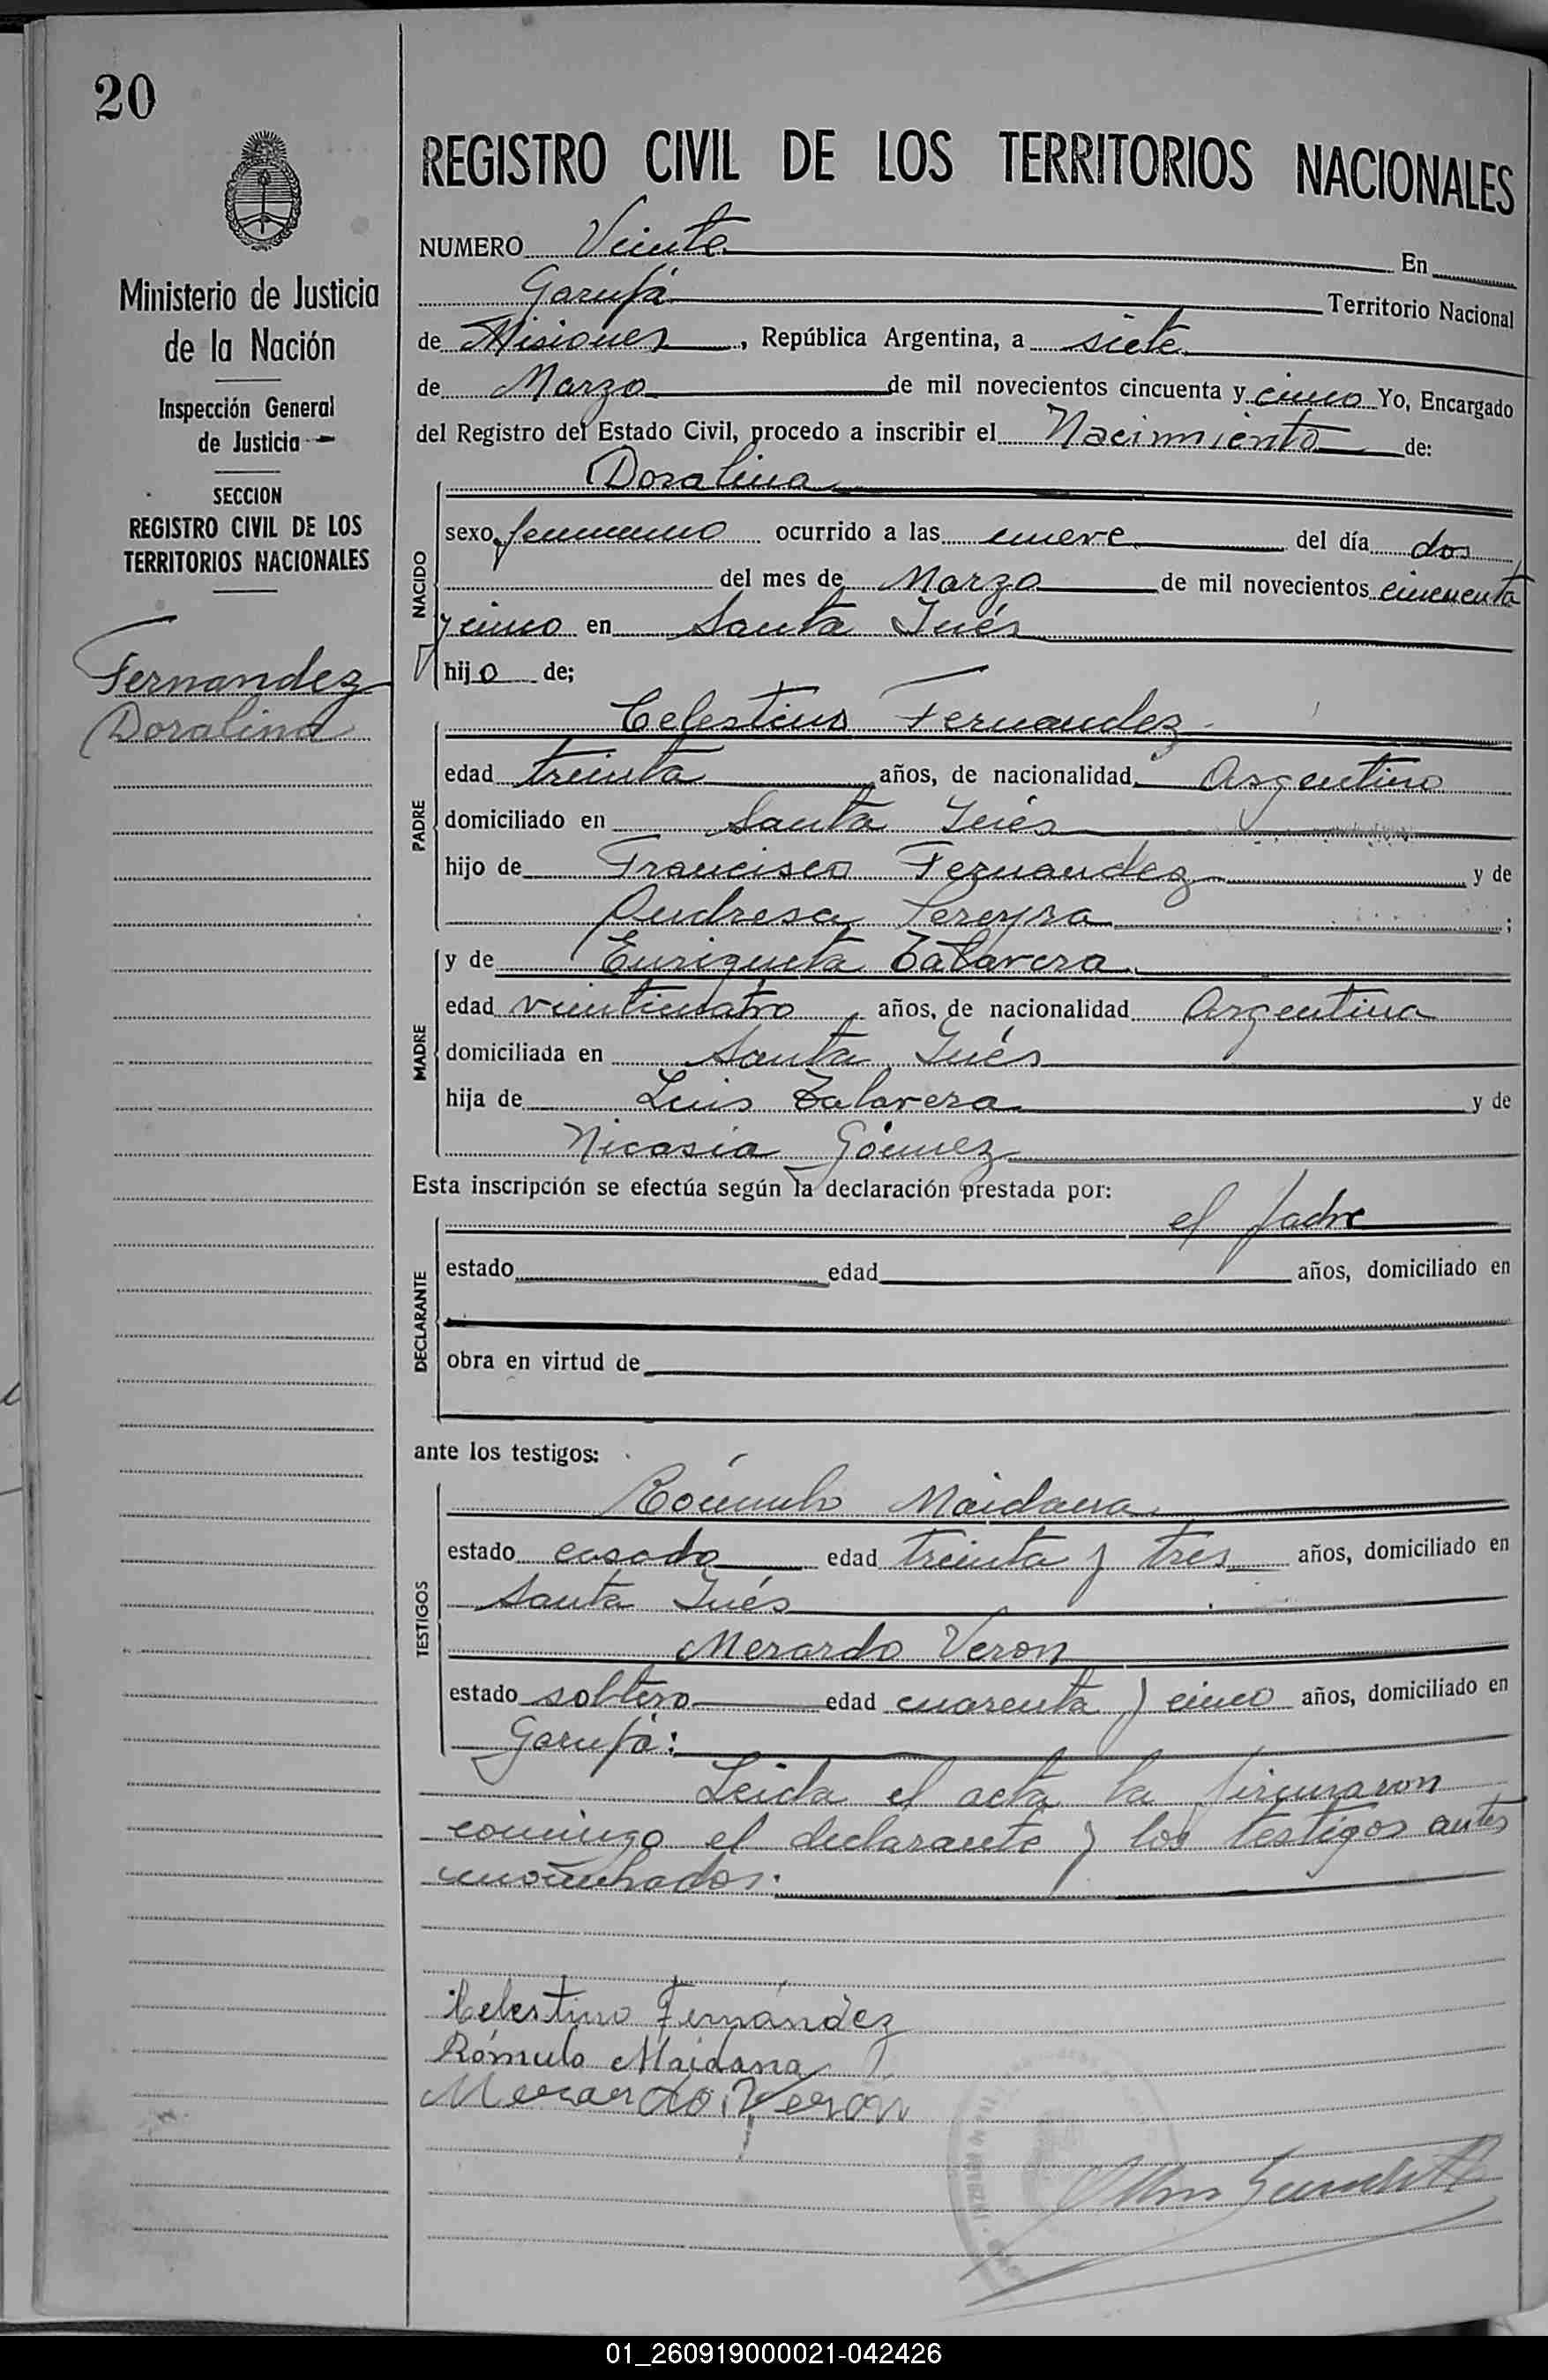 20
Ministerio de Justicia
de la Nación
Inspección General
de Justicia
SECCION
REGISTRO CIVIL DE LOS
TERRITORIOS NACIONALES
Fernandez
Doralina
REGISTRO CIVIL DE LOS TERRITORIOS NACIONALES
NUMERO Veinte En
Garupá Territorio Nacional
de Misiones, República Argentina, a siete
de Marzo de mil novecientos cincuenta y cinco Yo, Encargado
del Registro del Estado Civil, procedo a inscribir el Nacimiento de:
Doralina
NACIDO
sexo femenino ocurrido a las nueve del día dos
del mes de Marzo de mil novecientos cincuenta
y cinco en Santa Inés
hijo de;
PADRE
Celestino Fernandez
edad treinta años, de nacionalidad Argentino
domiciliado en Santa Inés
hijo de Francisco Fernandez y de
Andresa Pereyra;
MADRE
y de Enriqueta Talavera
edad veinticuatro años, de nacionalidad Argentina
domiciliada en Santa Inés
hija de Luis Talavera y de
Nicasia Gómez
Esta inscripción se efectúa según la declaración prestada por:
DECLARANTE
el padre
estado edad años, domiciliado en
obra en virtud de
ante los testigos:
TESTIGOS
Rómulo Maidana
estado casado edad treinta y tres años, domiciliado en
Santa Inés
Merardo Veron
estado soltero edad cuarenta y cinco años, domiciliado en
Garupá:
Leida el acta la firmaron
conmigo el declarante y los testigos antes
nombrados:
Celestino Fernández
Rómulo Maidana
Merardo Veron
01_260919000021-042426